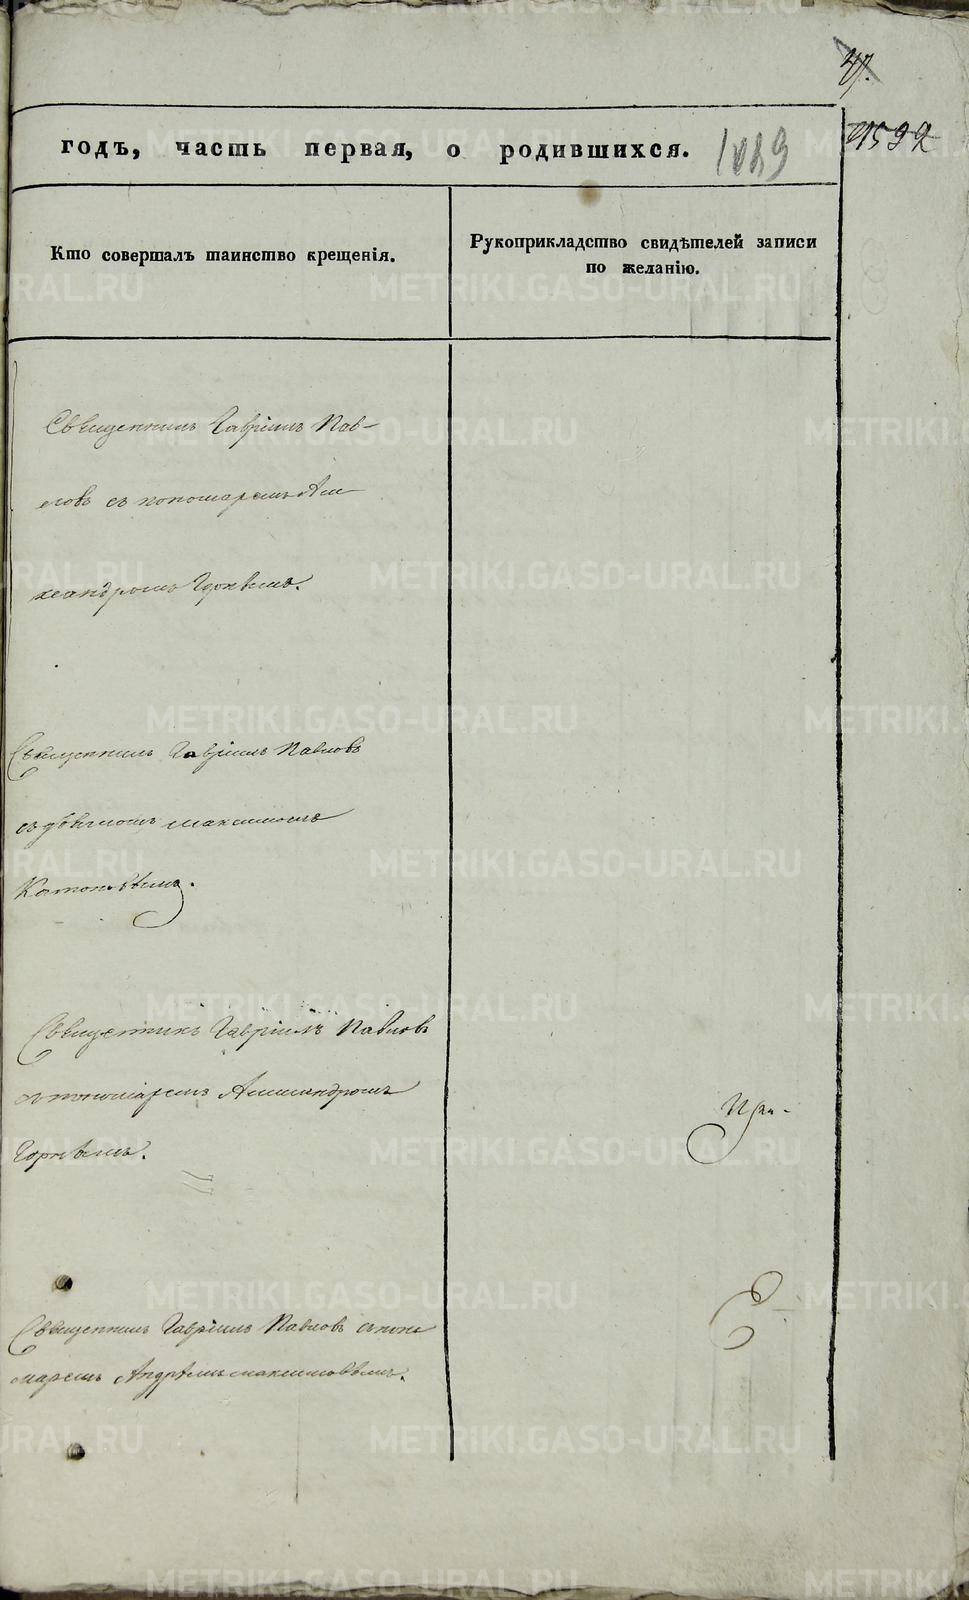 47.
1592
годъ, часть первая, о родившихся. 1089
Кто совершалъ таинство крещенія.
Рукоприкладство свидѣтелей записи
по желанію.
Священникъ Гавріилъ Пав-
ловъ съ пономаремъ Але
ксандромъ
Священникъ Гавріилъ Павловъ
съ дьячкомъ Максимомъ
Священникъ Гавріилъ Павловъ
съ пономаремъ Александромъ
При-
Священникъ Гавріилъ Павловъ съ поно
маремъ Андреемъ Максимовымъ.
METRIKI.GASO-URAL.RU